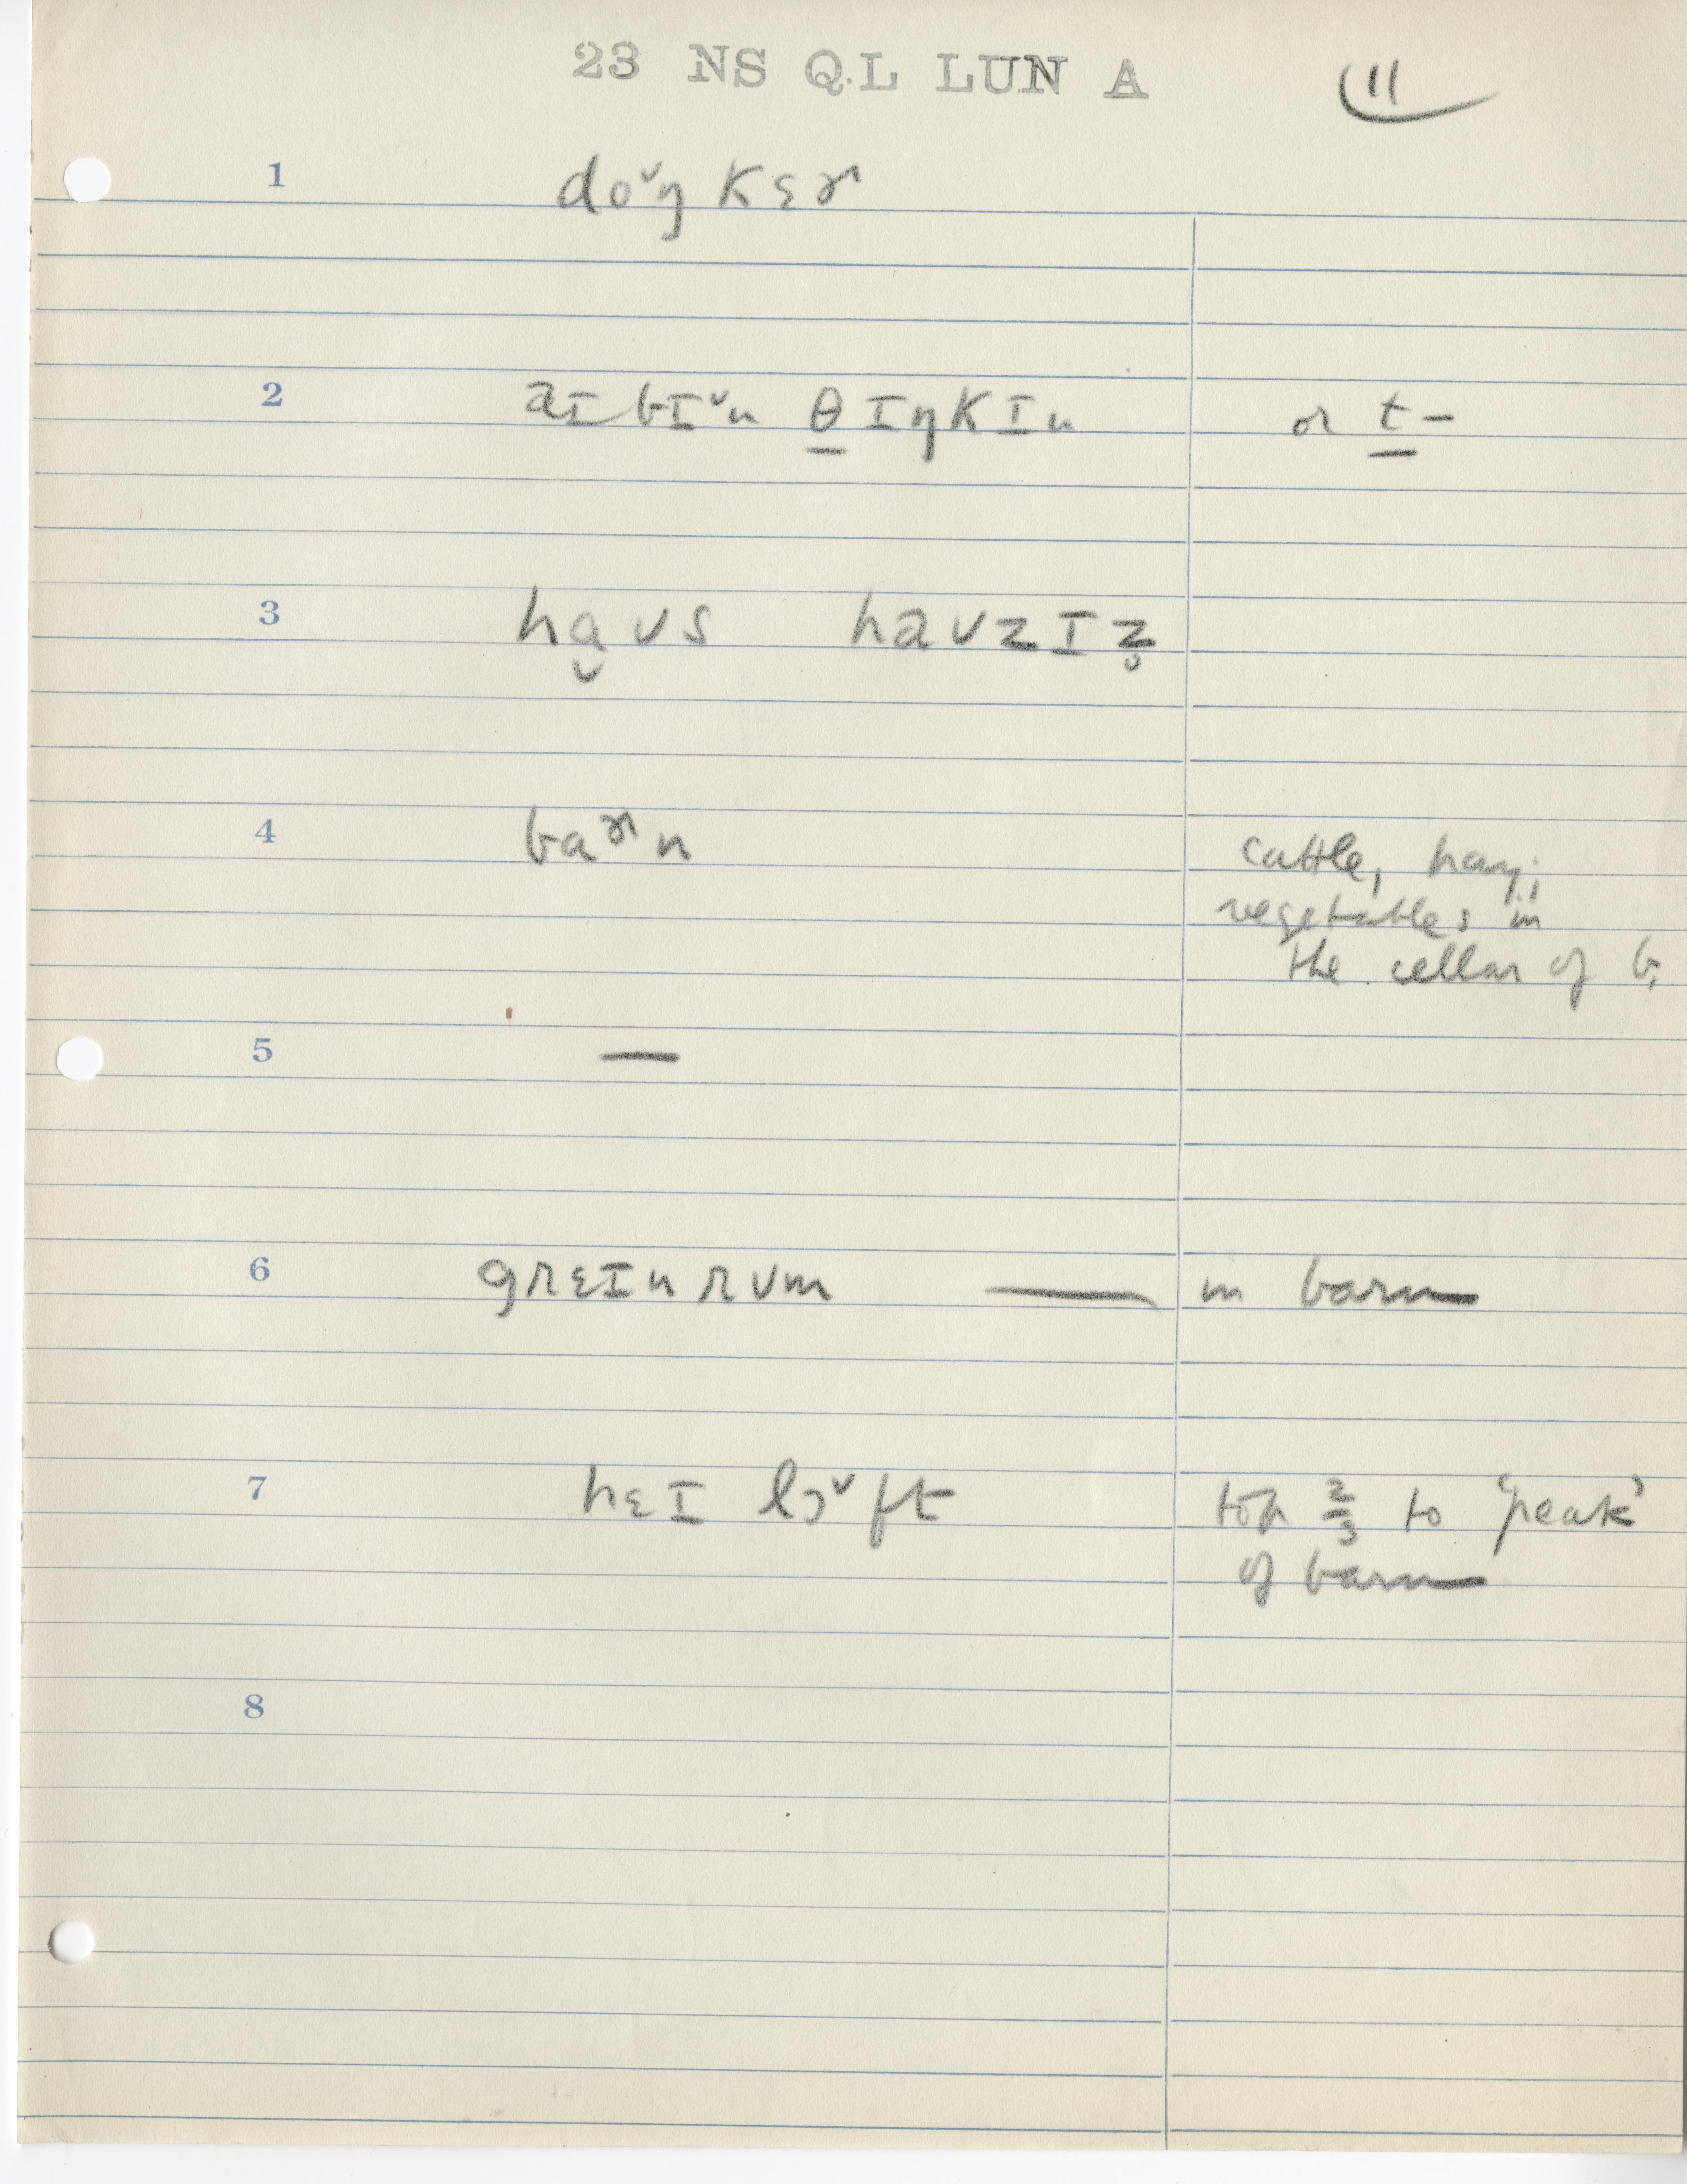 23 NS Q.L LUN A 11
1 do˅ŋ kɛɚ
2 aɪ bɪ˅n θ̱ ɪŋkɪn or t̠ –
3 ha̬ʊs haʊzɪz̥
4 baɚn cattle, hay;
vegetables in
the cellar of b.
5 —
6 grɛɪn rʊm — in barn
7 hɛɪ lɔ˅ft top 2/3 to 'peak'
of barn
8